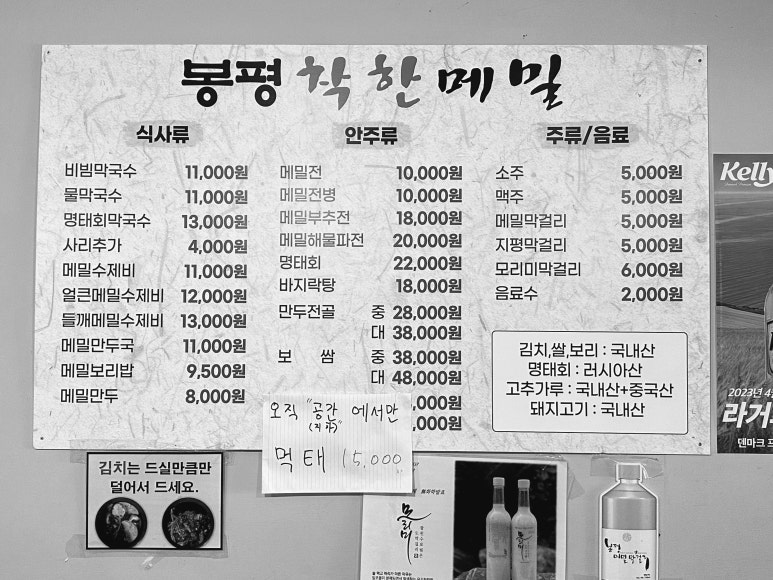 봉평 착한메밀
식사류
비빔막국수 11,000원
물막국수 11,000원
명태회막국수 13,000원
사리추가 4,000원
메밀수제비 11,000원
얼큰메밀수제비 12,000원
들깨메밀수제비 13,000원
메밀만두국 11,000원
메밀보리밥 9,500원
메밀만두 8,000원
안주류
메밀전 10,000원
메밀전병 10,000원
메밀부추전 18,000원
메밀해물파전 20,000원
명태회 22,000원
바지락탕 18,000원
만두전골 중 28,000원
대 38,000원
보쌈 중 38,000원
대 48,000원
,000원
,000원
주류/음료
소주 5,000원
맥주 5,000원
메밀막걸리 5,000원
지평막걸리 5,000원
모리미막걸리 6,000원
음료수 2,000원
김치,쌀,보리 : 국내산
명태회 : 러시아산
고추가루 : 국내산+중국산
돼지고기 : 국내산
오직 "공간" 에서만
먹태 15,000
김치는 드실만큼만
덜어서 드세요.
모리미
Kelly
2023년 4
라거
덴마크 프